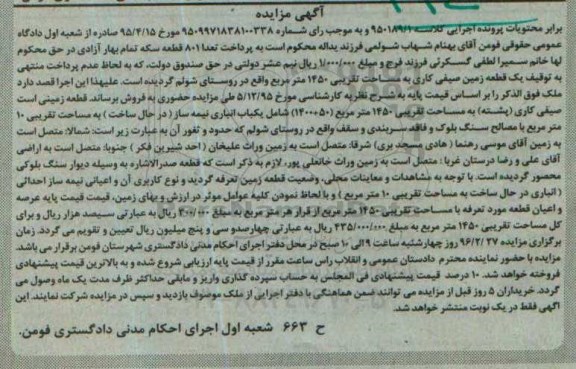 آگهی مزایده
برابر محتویات پرونده اجرایی کلاسه ۹۵۰۱۸۹/۱ و به موجب رای شماره ۹۵۰۹۹۷۱۸۳۸۱۰۰۳۳۸ مورخ ۹۵/۴/۱۵ صادره از شعبه اول دادگاه
عمومی حقوقی فومن آقای بهنام شهاب شولمی فرزند یداله محکوم است به پرداخت تعداد ۸۰۱ قطعه سکه تمام بهار آزادی در حق محکوم
لها خانم سمیرا لطفی گسکرئی فرزند فرج و مبلغ ۱/۰۰۰/۰۰۰ ریال نیم عشر دولتی در حق صندوق دولت، که به لحاظ عدم پرداخت منتهی
به توقیف یک قطعه زمین صیفی کاری به مساحت تقریبی ۱۴۵۰ متر مربع واقع در روستای شولم گردیده است. علیهذا این اجرا قصد دارد
ملک فوق الذکر را بر اساس قیمت پایه به شرح نظریه کارشناسی مورخ ۵/۱۲/۹۵ طی مزایده حضوری به فروش برساند. قطعه زمینی است
صیفی کاری (پشته) به مساحت تقریبی ۱۴۵۰ متر مربع (۵۰+۱۴۰۰) شامل یکباب انباری نیمه ساز (در حال ساخت) به مساحت تقریبی ۱۰
متر مربع با مصالح سنگ بلوک و فاقد سربندی و سقف واقع در روستای شولم که حدود و ثغور آن به عبارت زیر است: شمالا: متصل است
به زمین آقای موسی رهنما (هادی مسجد بری) شرقا: متصل است به زمین وراث علیخان (احد شیرین فکر) جنوبا: متصل است به اراضی
آقای علی و رضا درستان غربا: متصل است به زمین وراث خانعلی پور، لازم به ذکر است که قطعه صدرالاشاره به وسیله دیوار سنگ بلوکی
محصور گردیده است. با توجه به مشاهدات و معاینات محلی، وضعیت قطعه زمین تعرفه گردید و نوع کاربری آن و اعیانی نیمه ساز احداثی
(انباری در حال ساخت به مساحت تقریبی ۱۰ متر مربع) و با لحاظ نمودن کلیه عوامل موثر در ارزش و بهای زمین، قیمت پایه عرصه
و اعیان قطعه مورد تعرفه با مساحت تقریبی ۱۴۵۰ متر مربع از قرار هر متر مربع به مبلغ ۳۰۰/۰۰۰ ریال به عبارتی سیصد هزار ریال و برای
کل مساحت تقریبی ۱۴۵۰ متر مربع به مبلغ ۴۳۵/۰۰۰/۰۰۰ ریال به عبارتی چهارصدو سی و پنج میلیون ریال تعیین و تقویم می گردد. زمان
برگزاری مزایده ۹۶/۲/۲۷ روز چهارشنبه ساعت ۹ الی ۱۰ صبح در محل دفتر اجرای احکام مدنی دادگستری شهرستان فومن برقرار می باشد.
مزایده با حضور نماینده محترم دادستان عمومی و انقلاب راس ساعت مقرر از قیمت پایه ارزیابی شروع شده و به بالاترین قیمت پیشنهادی
فروخته خواهد شد. ۱۰ درصد قیمت پیشنهادی فی المجلس به حساب سپرده گذاری واریز و مابقی حداکثر ظرف مدت یک ماه وصول می
گردد. خریداران ۵ روز قبل از مزایده می توانند ضمن هماهنگی با دفتر اجرایی از ملک موصوف بازدید و سپس در مزایده شرکت نمایند. این
آگهی فقط در یک نوبت منتشر خواهد شد.
ح ۶۶۳ شعبه اول اجرای احکام مدنی دادگستری فومن.